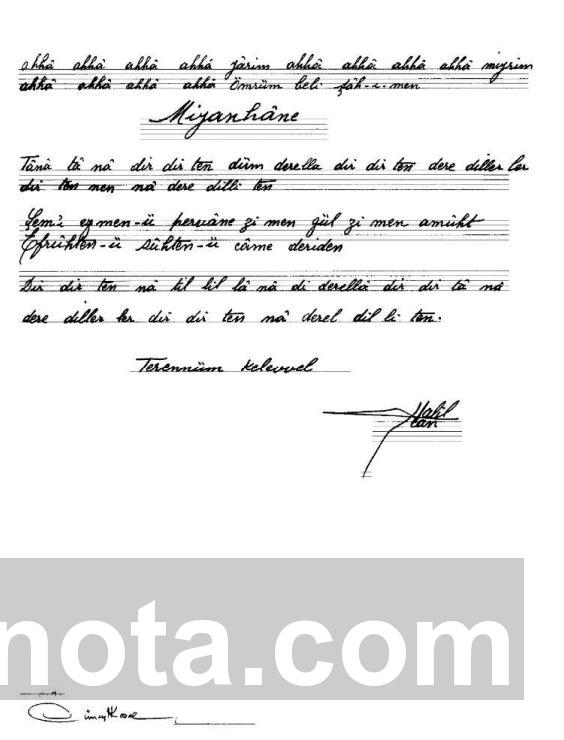 ahhâ ahhâ ahhâ ahhâ yârim ahhâ ahhâ ahhâ ahhâ miyrim
ahhâ ahhâ ahhâ ahhâ Ömrüm beli şâh-ı-men
Miyanhâne
Tânâ tâ nâ dir dir ten düm derella dir dir ten dere diller ler
dir ten nen nâ dere dilli ten
Şem'i ez men-ü pervâne zi men gül zi men amûht
Efrûhten-ü sûhten-ü câme deriden
Dir dir ten nâ til lil lâ nâ di derellâ dir dir tâ nâ
dere diller ler dir dir ten nâ derel dil li ten.
Terennüm kelevvel
Halil
Can
nota.com